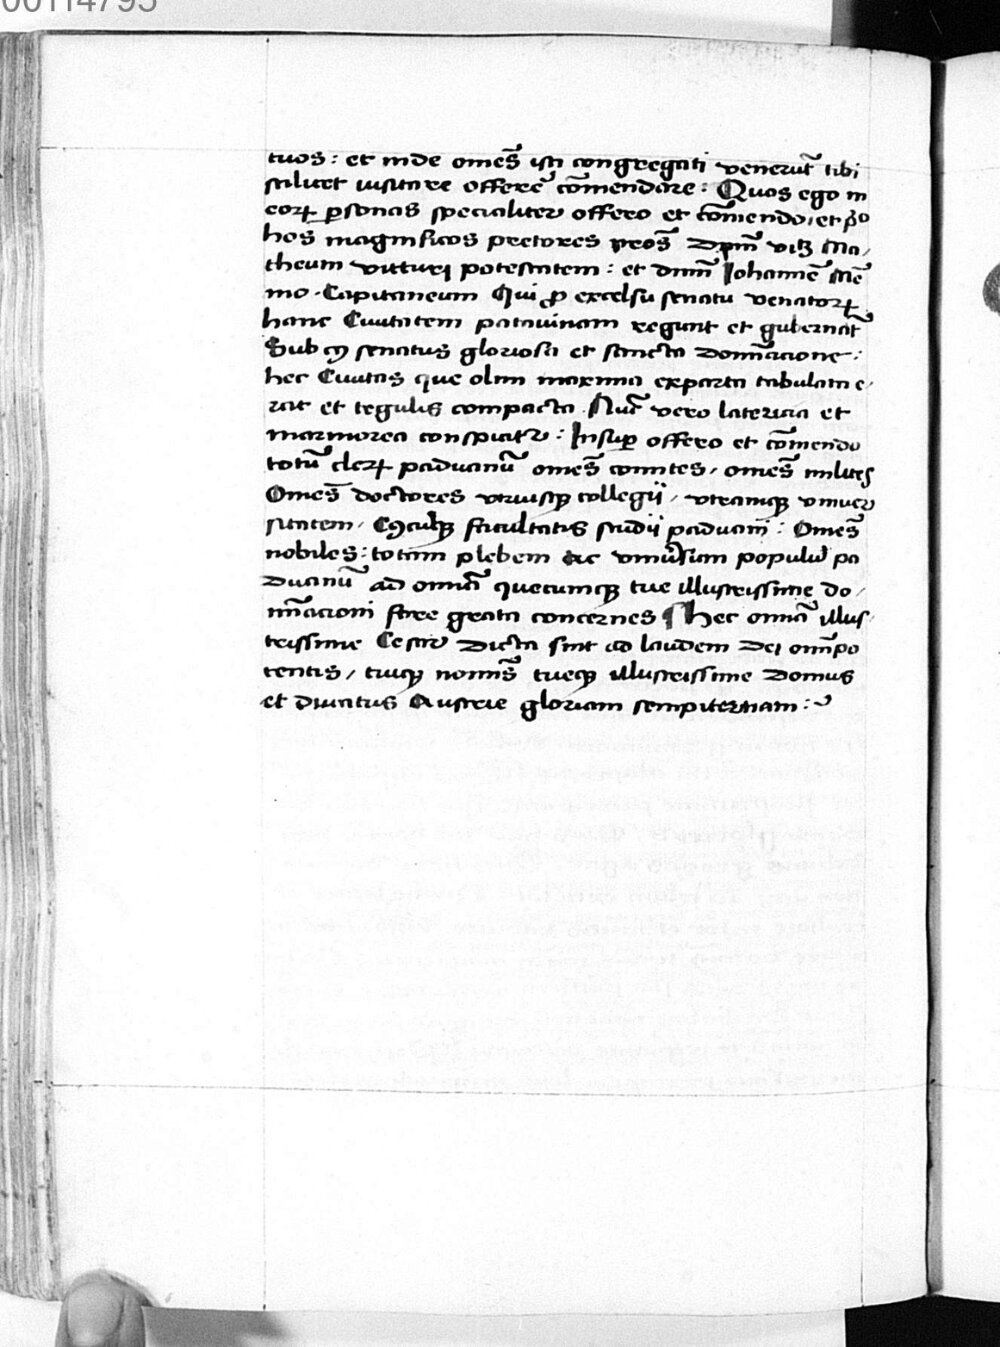 00114795
tuos : et inde omēs isti congregati venerūt tibi
scilicet visitare offerē cōmendare : Quos ego in
eorꝝ ꝑsonas specialiter offero et cōmendo, et pͦ
hos magnificos pretores vros̄ dnm̄ vitꝫ Ma,
theum vitturj potestatem : et dnm̄ Johannē Mē
mo . Capitaneum Qui ꝓ excelsu senatu venatorꝝ
hanc Civitatem patavinam regunt et gubernāt
Sub senatus gloriosa et sancta domīacione :
hec Civitas que olim maxima exparta tabulata e,
rat et tegulis compacta . Nuc̄ vero latericia et
marmorea conspicitr : Insuꝑ offero et cōmendo
totū clerꝝ paduanū omēs comites, omēs milites
Omēs doctores utriusqꝫ collegij, utramqꝫ vniver
sitatem, facultatis studij paduani : Omēs
nobiles : totam plebem ac vniūsam populū pa
duanū ad omnā quecumqꝫ tue illustrissime do,
mīacioni fore grata concernes ¶ hec omnā illus,
trissime Cesar dicta sint ad laudem dei omīpo
tentis, tuiqꝫ nomīs tueqꝫ illustrissime domus
et diuitus Austrie gloriam sempiternam :